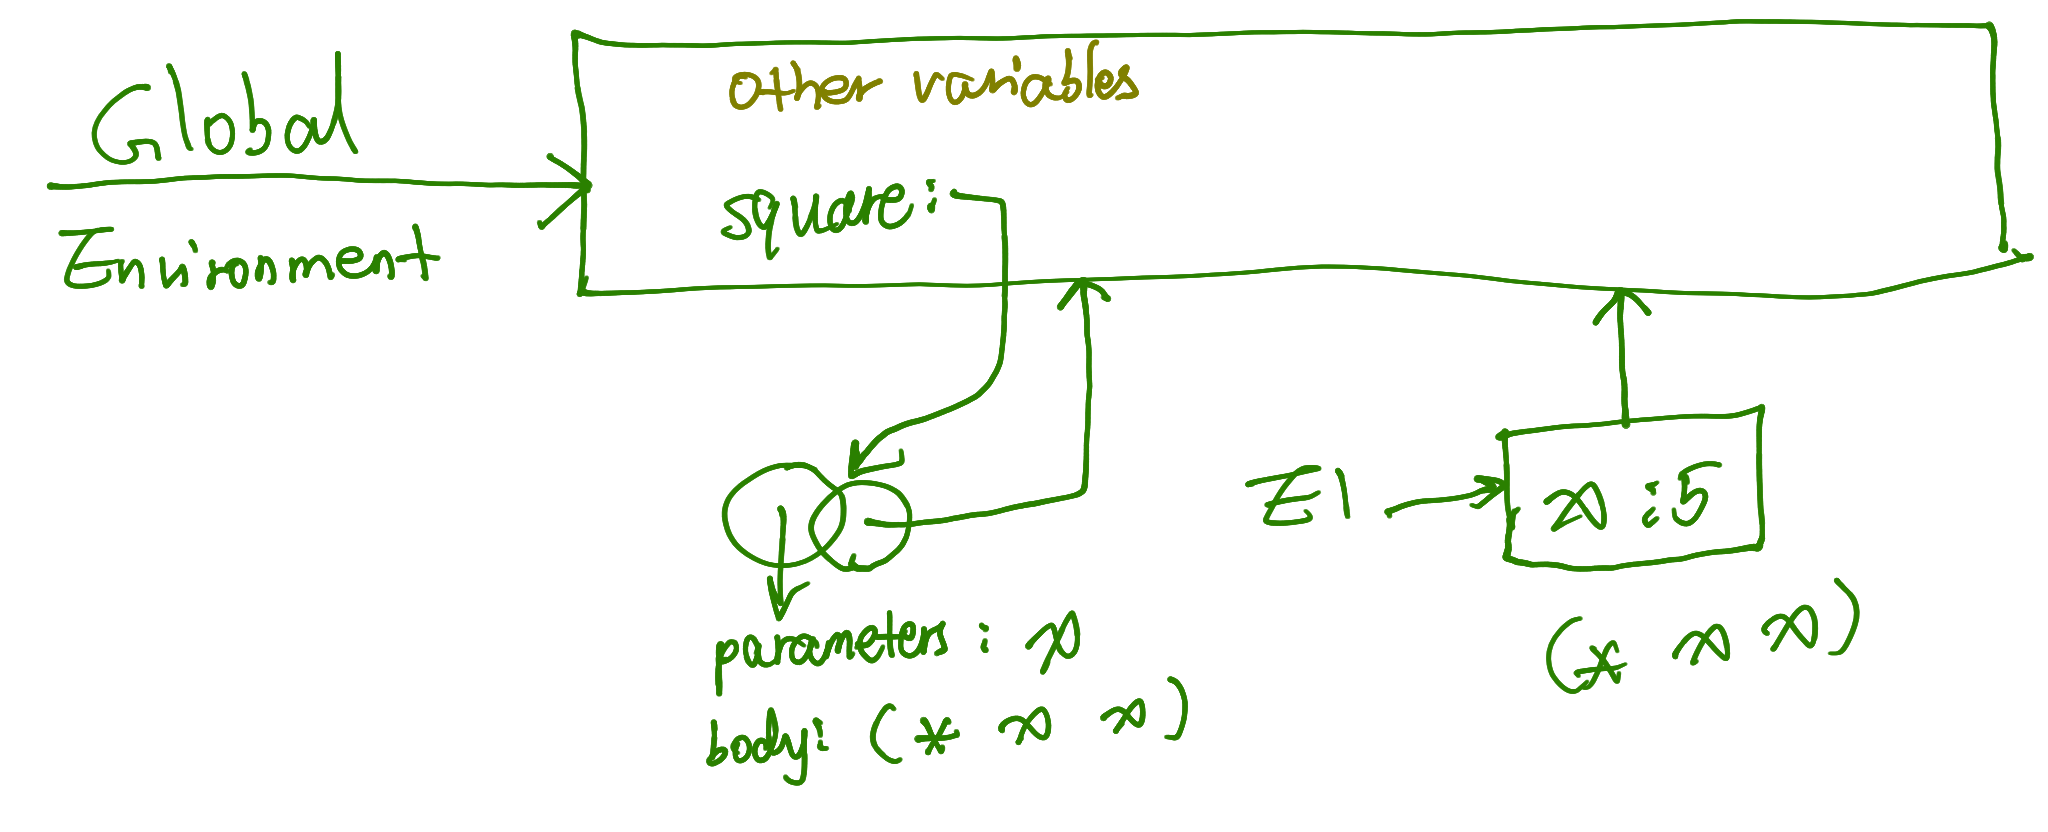 Global
Environment
other variables
square:
E1
x : 5
parameters : x
body: (* x x)
(* x x)